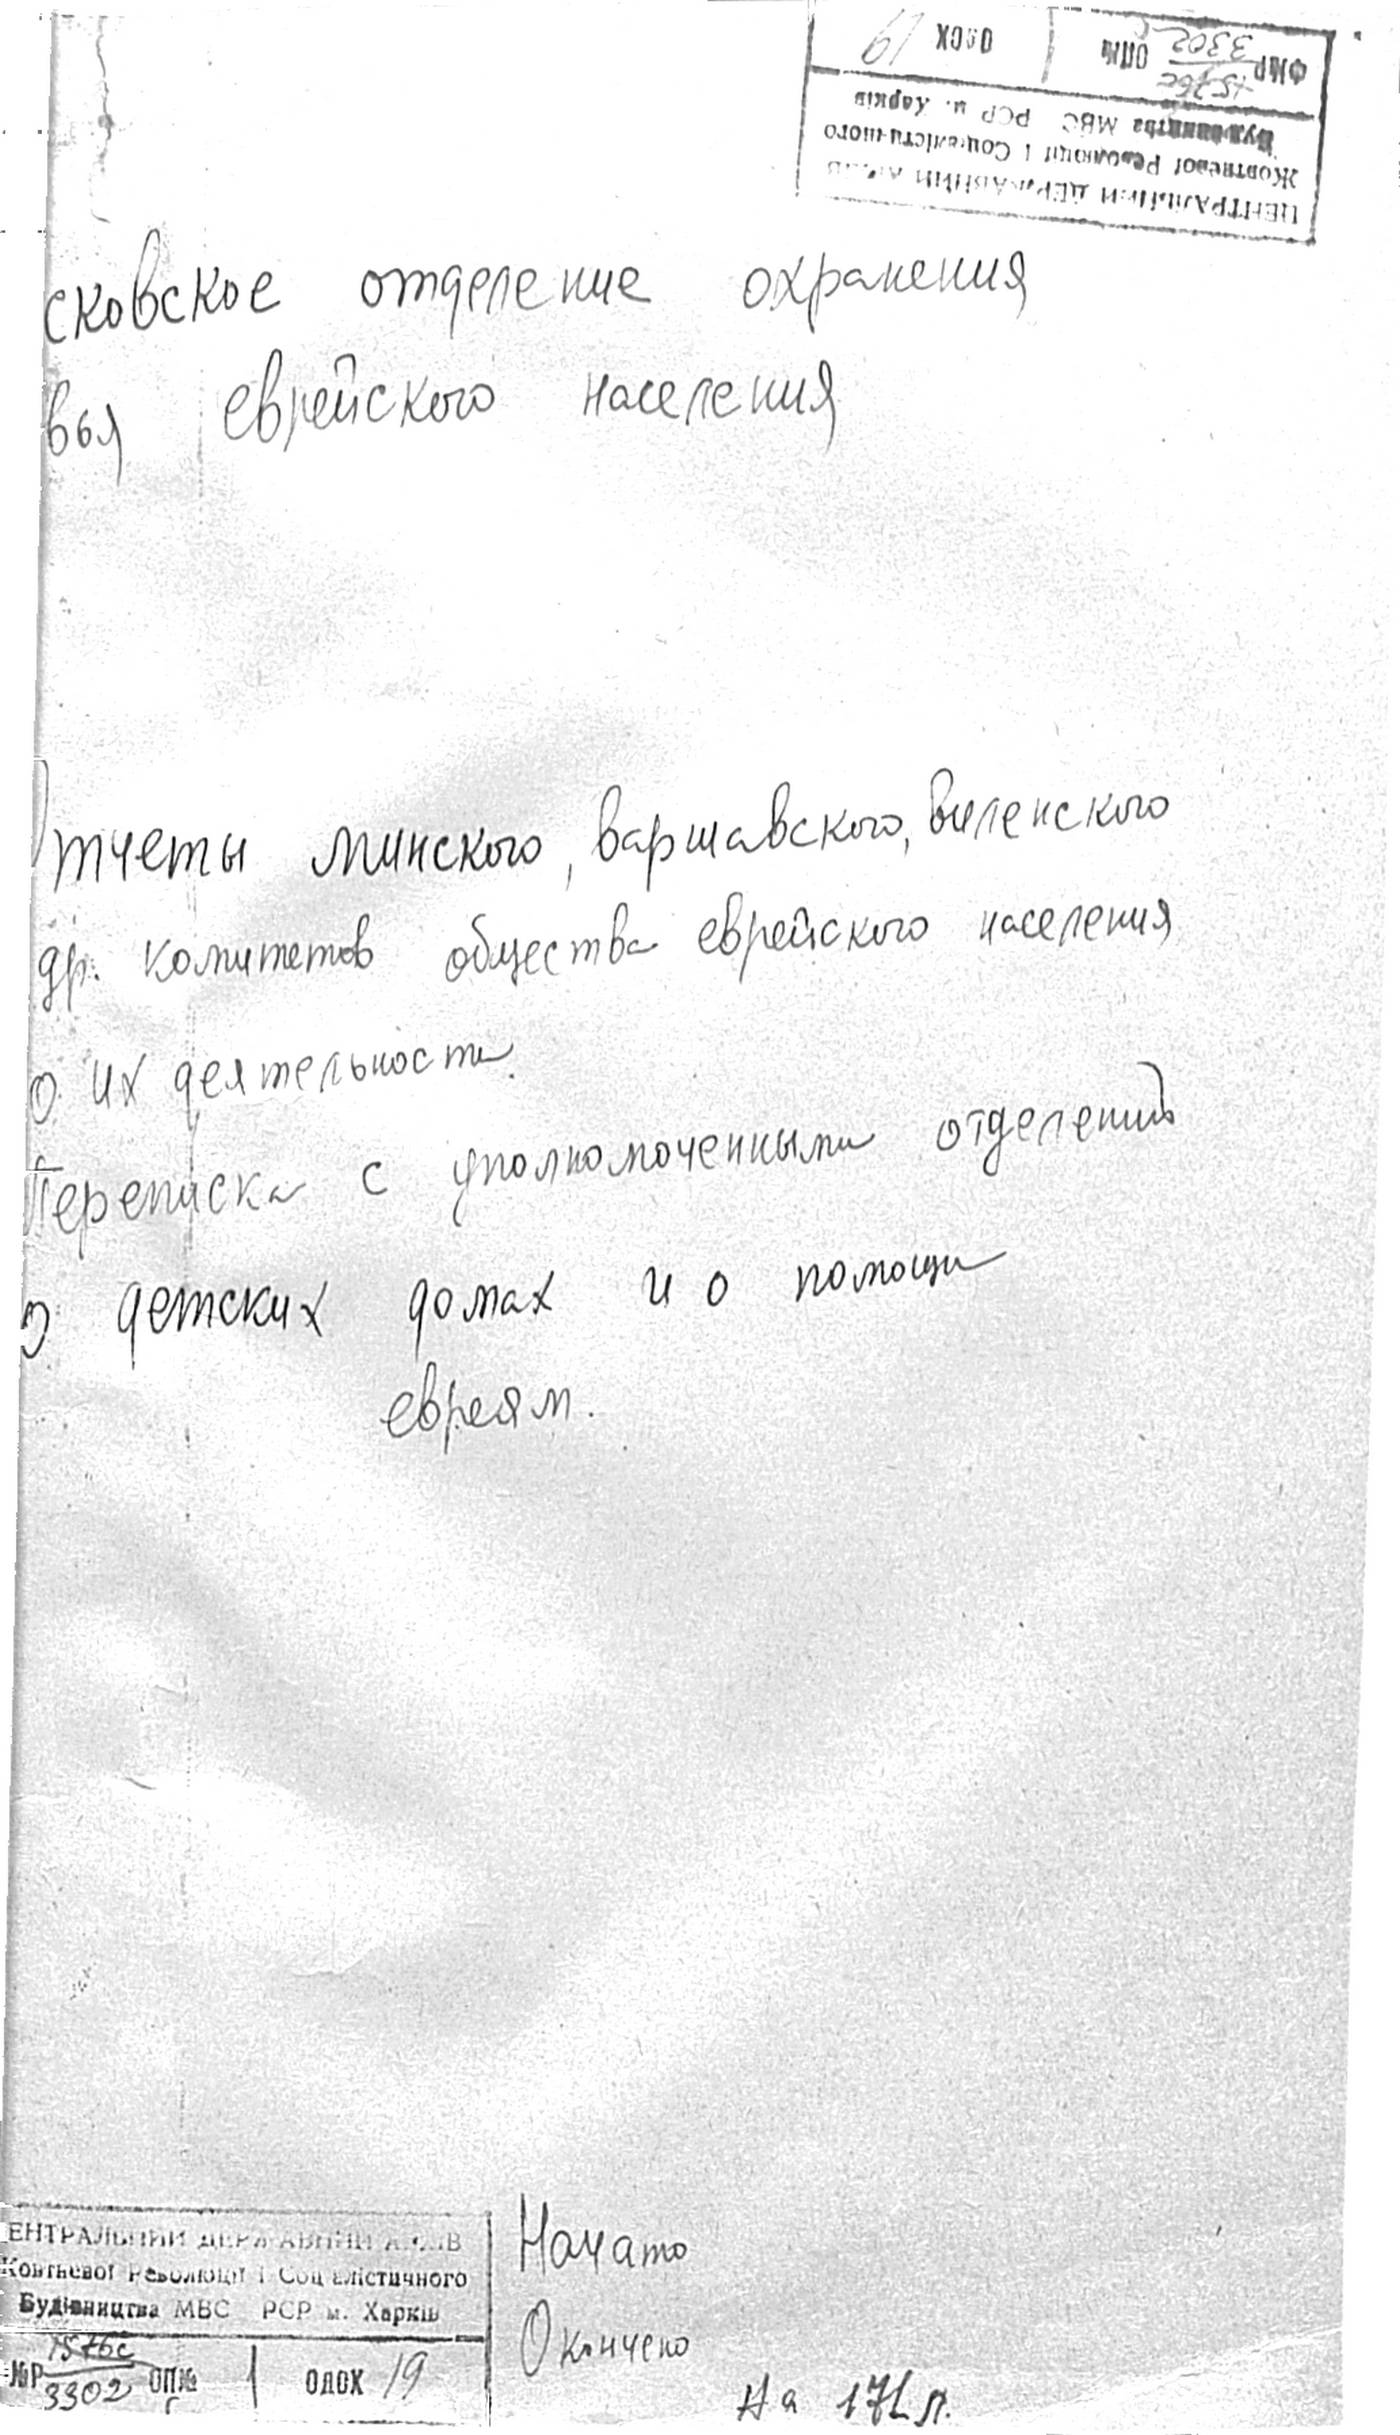 ФМР 1576с 3302 ОПИ 1 ОДОХ 19
ЦЕНТРАЛЬНИЙ ДЕРЖАВНИЙ АРХІВ
Жовтневої Революції і Соціалістичного
Будівництва МВС РСР м. Харків
сковское отделение охранения
вья еврейского населения
Отчеты минского, варшавского, виленского
др. комитетов общества еврейского населения
о их деятельности.
Переписка с уполномоченными отделений
о детских домах и о помощи
евреям.
ЕНТРАЛЬНИЙ ДЕРЖАВНИЙ АРХІВ
Жовтневої Революції і Соціалістичного
Будівництва МВС РСР м. Харків
№Р 1576с 3302 ОПИ 1 ОДОХ 19
Начато
Окончено
На 171 л.